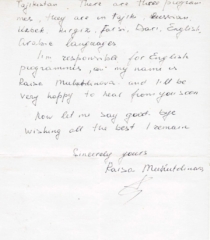 Tajikistan. There are three program
mes, they are in Tajik, Russian
Uzbek, Kirgiz, Farsi, Dari, English,
Arabic languages
I'm responsible for English
programmes, my name is
Raisa Muhutdinova and I'll be
very happy to hear from you soon
Now let me say good bye
wishing all the best I remain
Sincerely yours
Raisa Muhutdinova